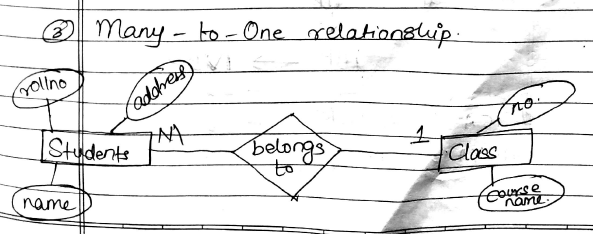 ③ Many-to-One relationship.
rollno
address
no.
Students M belongs to 1 Class
name
course name.